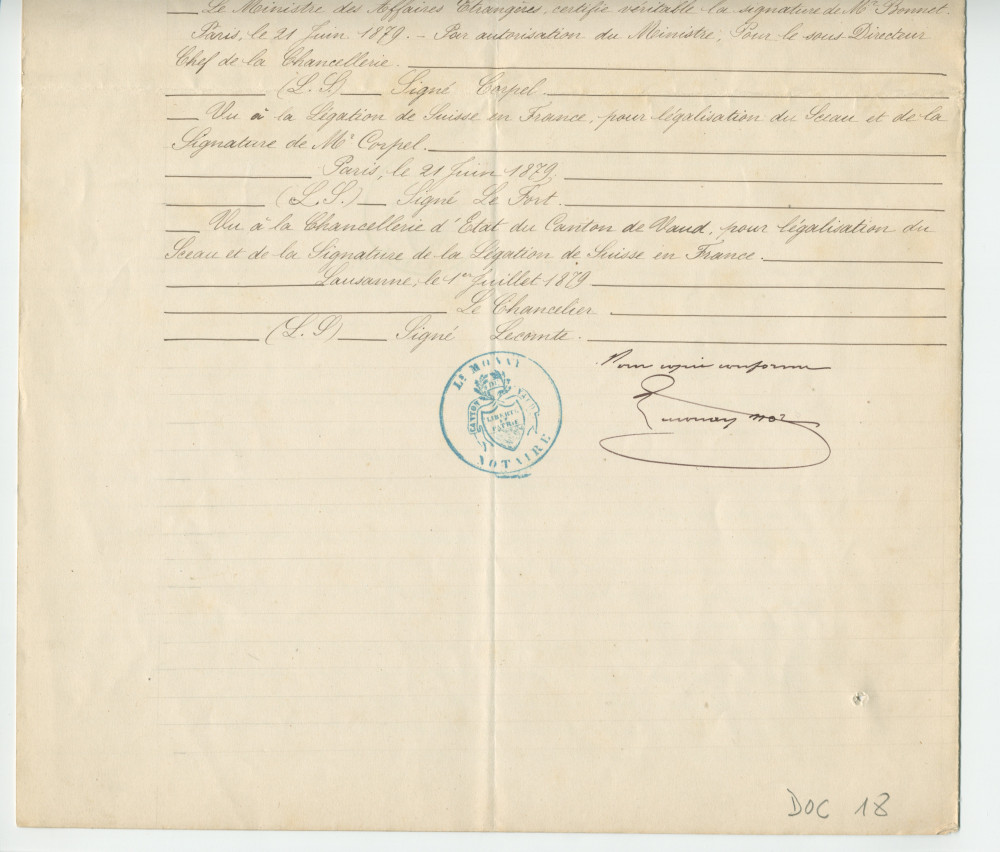 Le Ministre des Affaires Etrangères, certifie véritable la signature de Mr Bonnet.
Paris, le 21 Juin 1879. - Par autorisation du Ministre, Pour le sous-Directeur
Chef de la Chancellerie.
(L. S) Signé Corpel.
Vu à la Légation de Suisse en France, pour légalisation du Sceau et de la
Signature de Mr Corpel.
Paris, le 21 Juin 1879.
(L. S.) Signé Le Fort.
Vu à la Chancellerie d'Etat du Canton de Vaud, pour légalisation du
Sceau et de la Signature de la Légation de Suisse en France.
Lausanne, le 1er Juillet 1879
Le Chancelier
(L. S) Signé Lecomte.
Pour copie conforme
Ls MONAY
CANTON DE VAUD
LIBERTÉ
ET
PATRIE
NOTAIRE
DOC 18